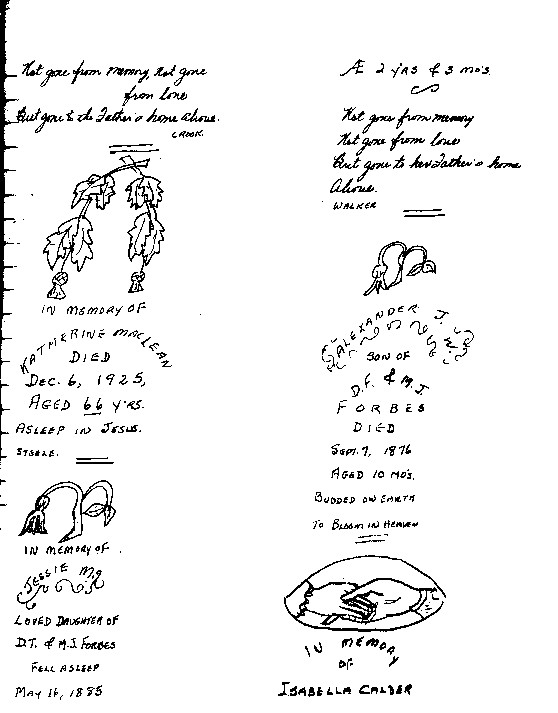 Not gone from memory, Not gone
from love
But gone to the Father's home above.
CROOK.
IN MEMORY OF
KATHERINE MACLEAN
DIED
DEC. 6, 1925,
AGED 66 YRS.
ASLEEP IN JESUS.
STEELE.
IN MEMORY OF
JESSIE M.G
LOVED DAUGHTER OF
D.T. & M.J. FORBES
FELL ASLEEP
MAY 16, 1885
Æ 2 YRS & 3 MO'S.
Not gone from memory
Not gone from love
But gone to her Father's home
above.
WALKER
ALEXANDER J.
SON OF
D.F. & M.J.
FORBES
DIED
SEPT. 7, 1876
AGED 10 MO'S.
BUDDED ON EARTH
TO BLOOM IN HEAVEN
IN MEMORY
OF
ISABELLA CALDER